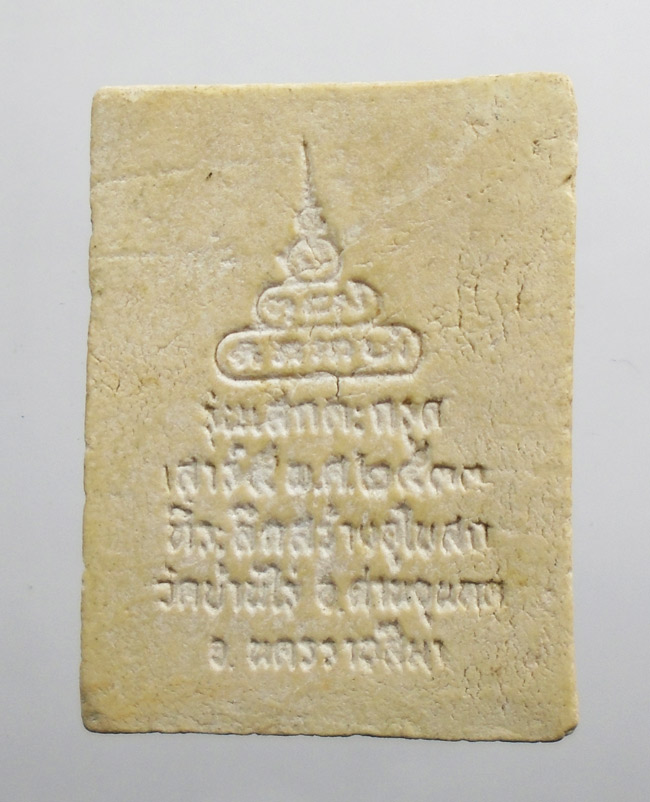 รุ่นแซกตะกรุด
เสาร์ ๕ พ.ศ. ๒๕๓๓
ที่ระลึกสร้างอุโบสถ
วัดบ้านไร่ อ.ด่านขุนทด
จ. นครราชสีมา